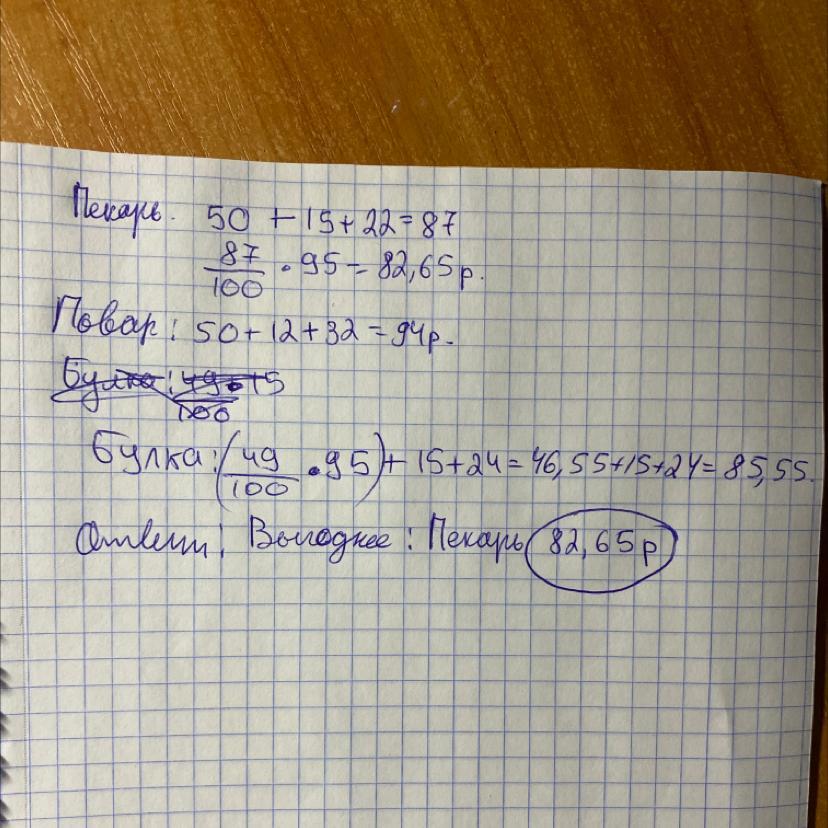 Пекарь. 50 + 15 + 22 = 87
87/100 · 95 = 82,65 р.
Повар: 50 + 12 + 32 = 94 р.
Булка: 49 · 15/100
Булка: (49/100 · 95) + 15 + 24 = 46,55 + 15 + 24 = 85,55.
Ответ: Выгоднее: Пекарь 82,65 р